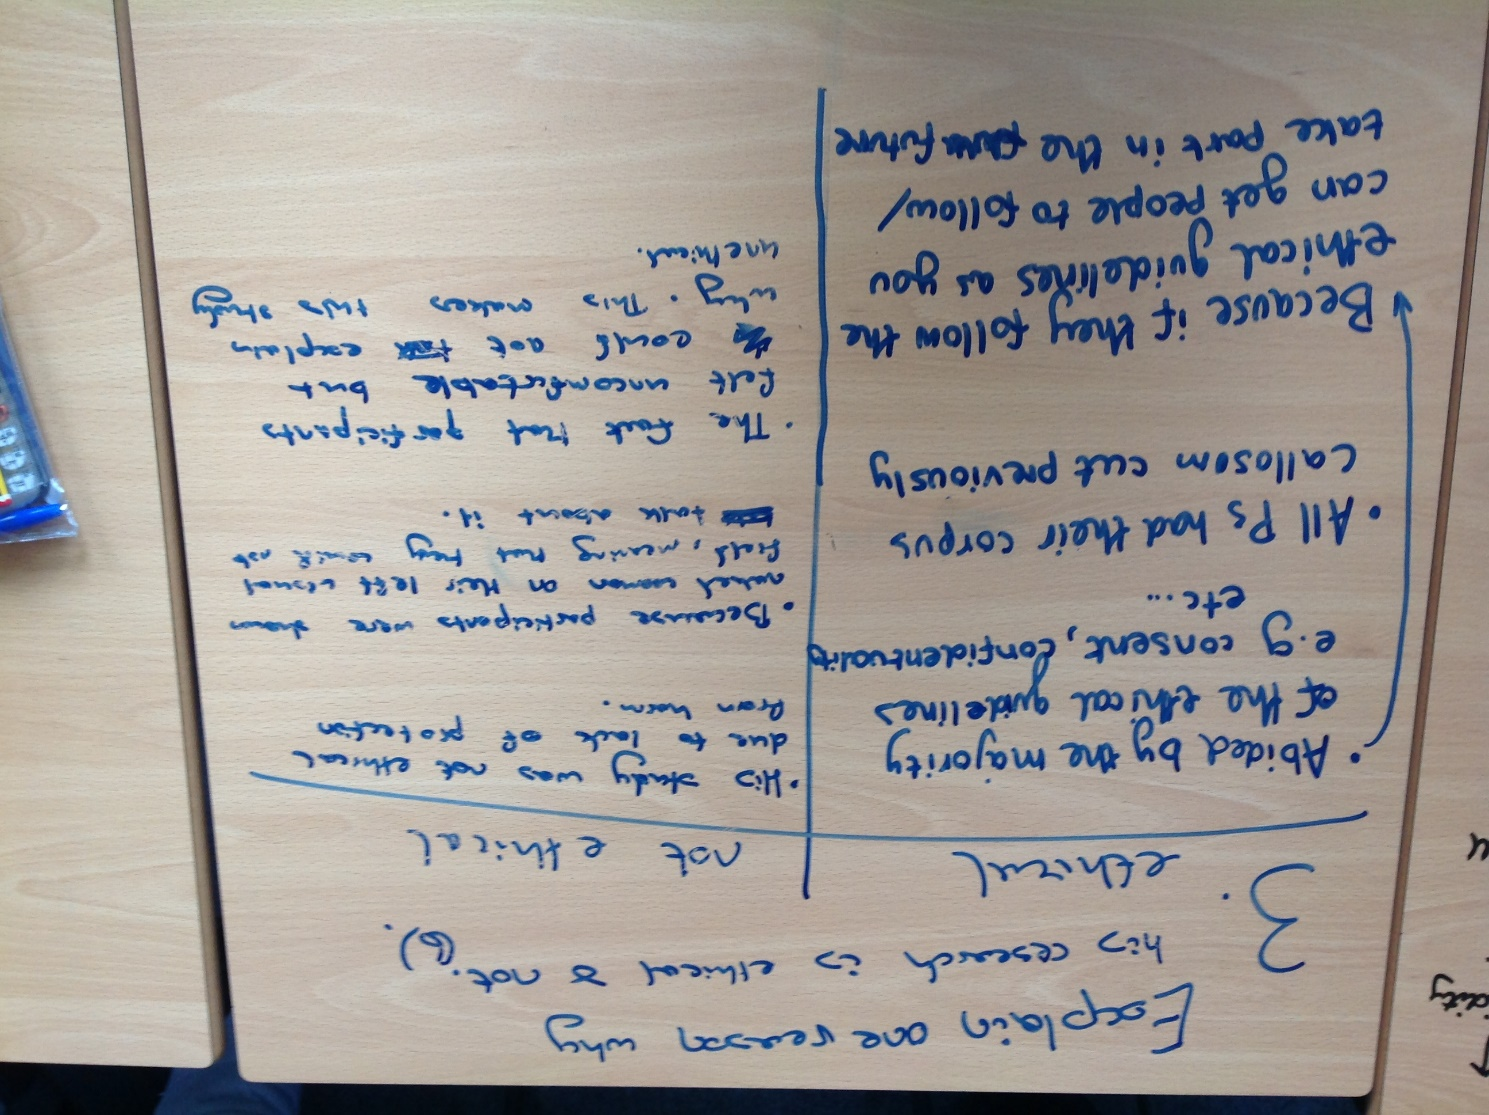 Explain one reason why
his research is ethical & not. (6).
3.
ethical
not ethical
• Abided by the majority
of the ethical guidelines
e.g consent, confidentuality
etc...
• All Ps had their corpus
callosom cut previously
Because if they follow the
ethical guidelines as you
can get people to follow/
take part in the future
• His study was not ethical
due to lack of protection
from harm.
• Because participants were shown
naked woman on their left visual
field, meaning that they could not
talk about it.
• The fact that participants
felt uncomfortable but
could not explain
why. This makes this study
unethical.